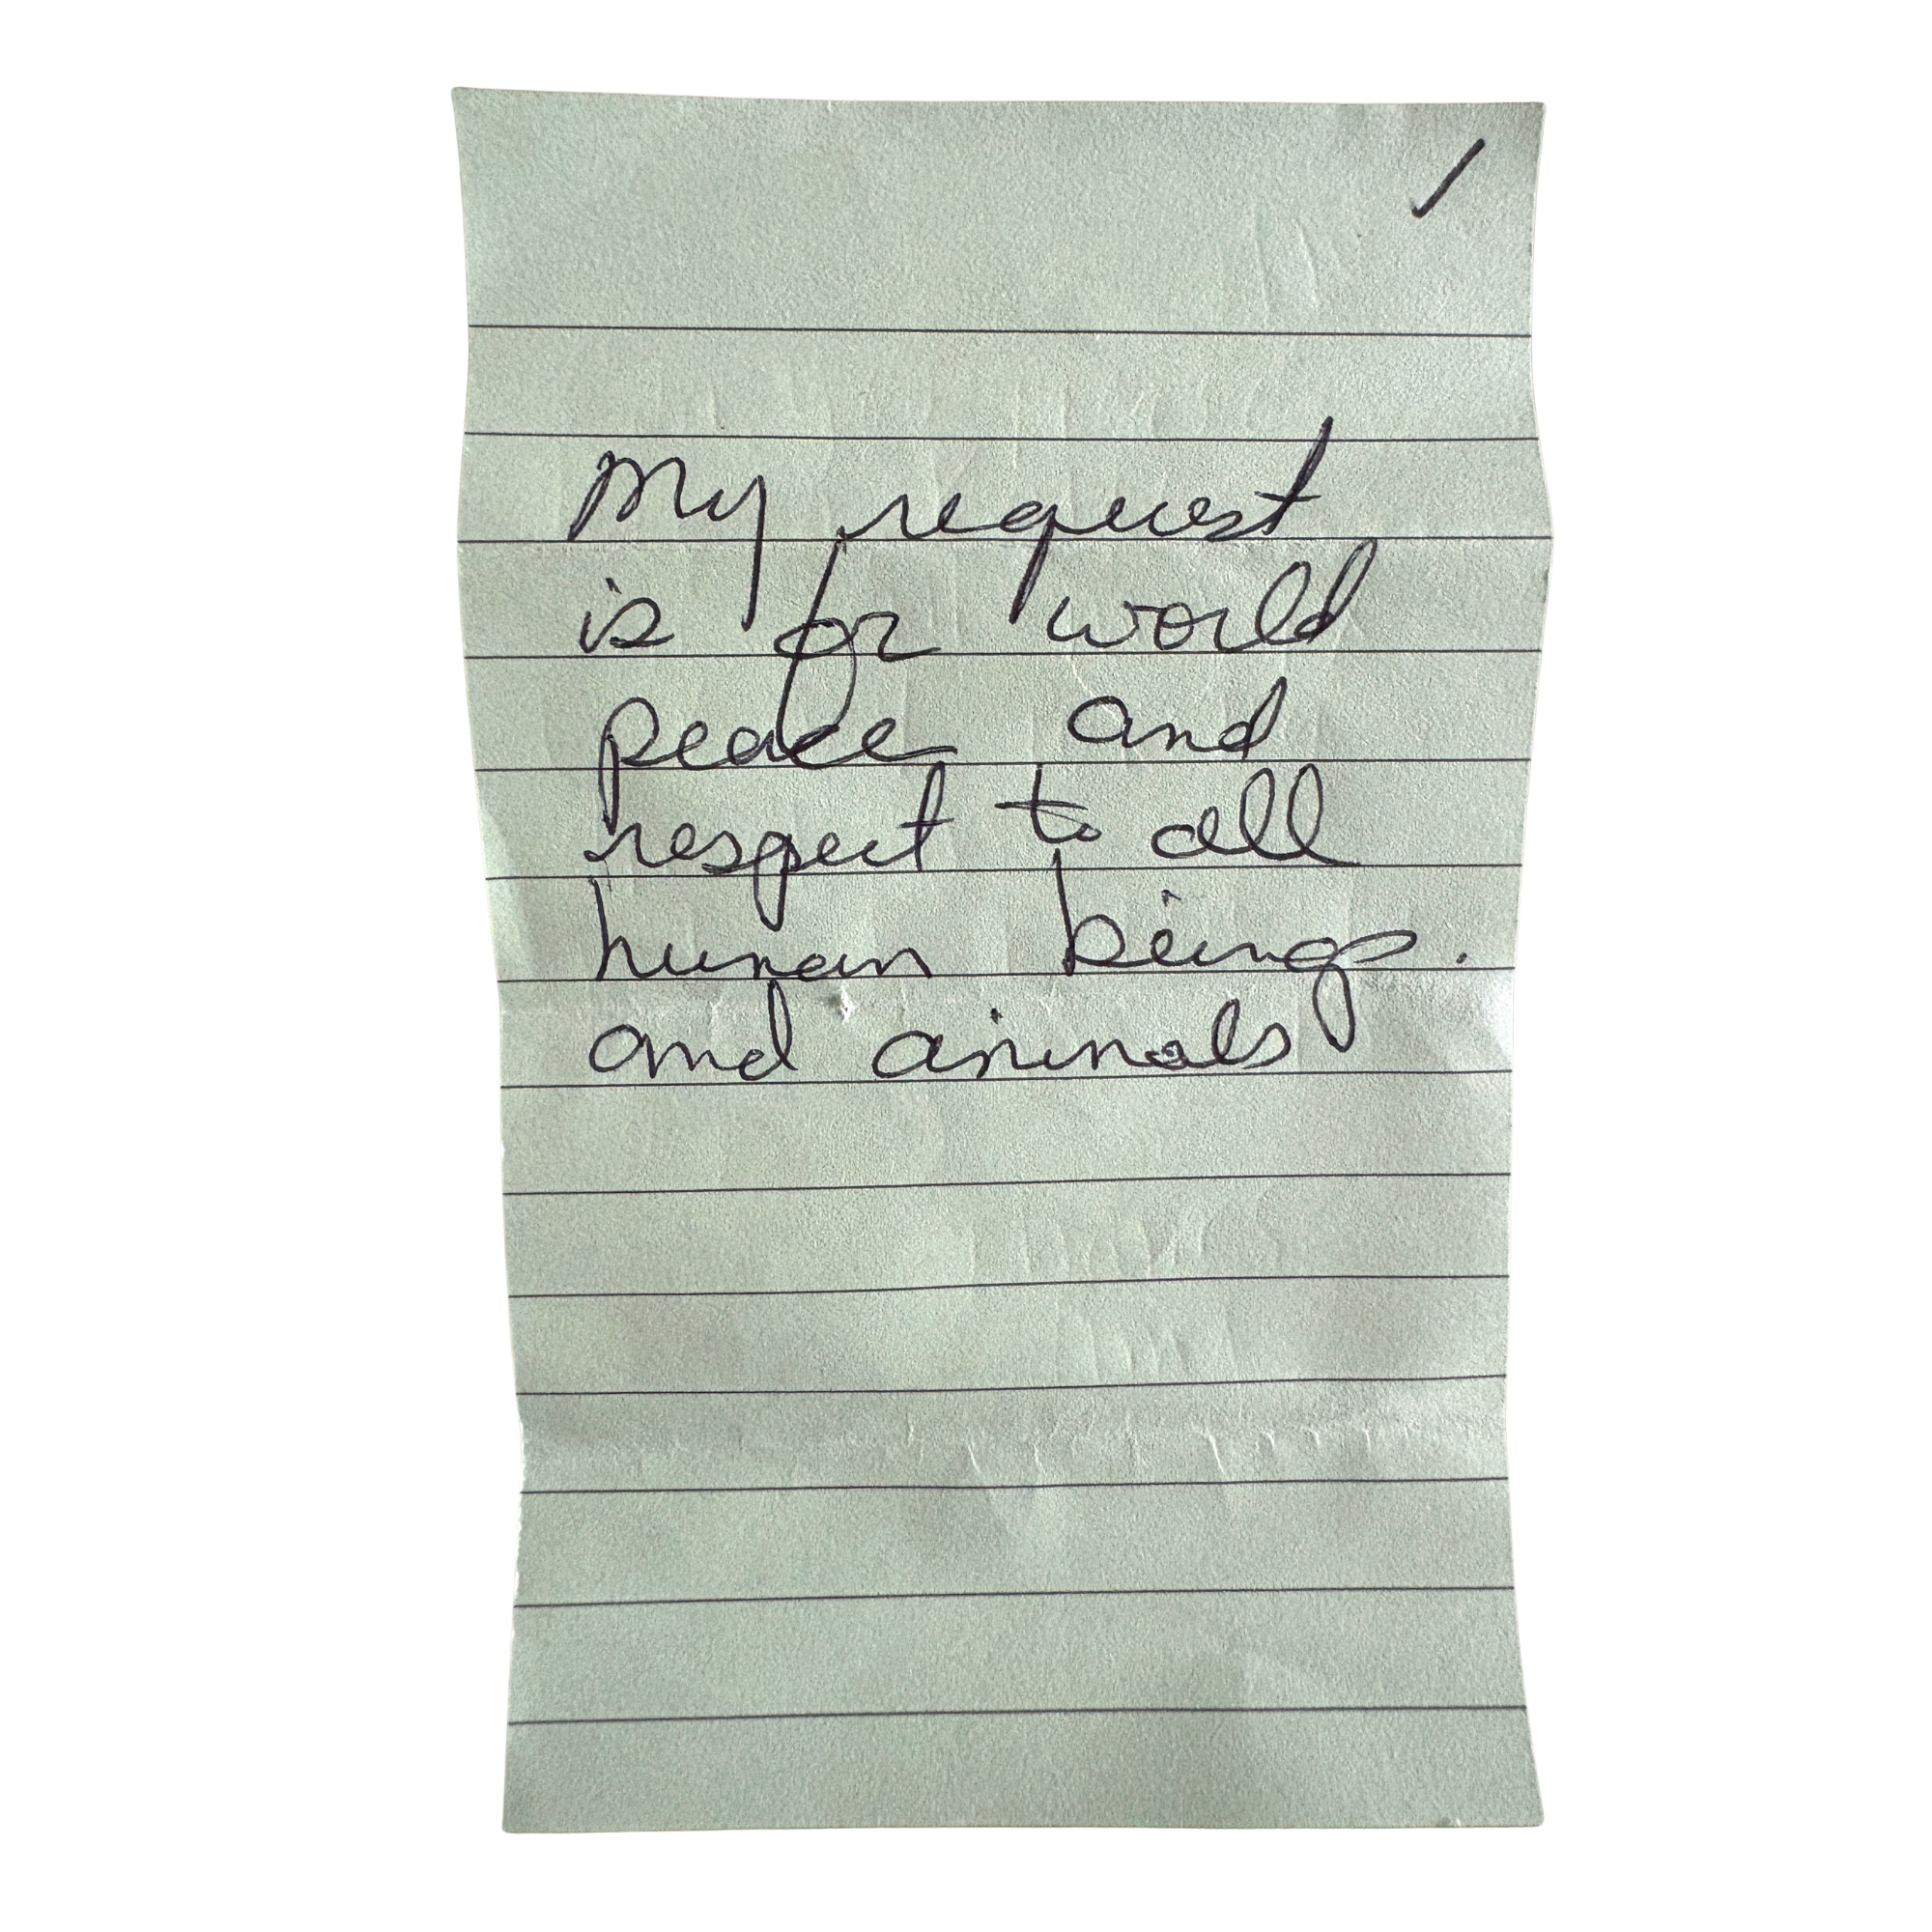 /
My request
is for world
peace and
respect to all
human beings.
and animals